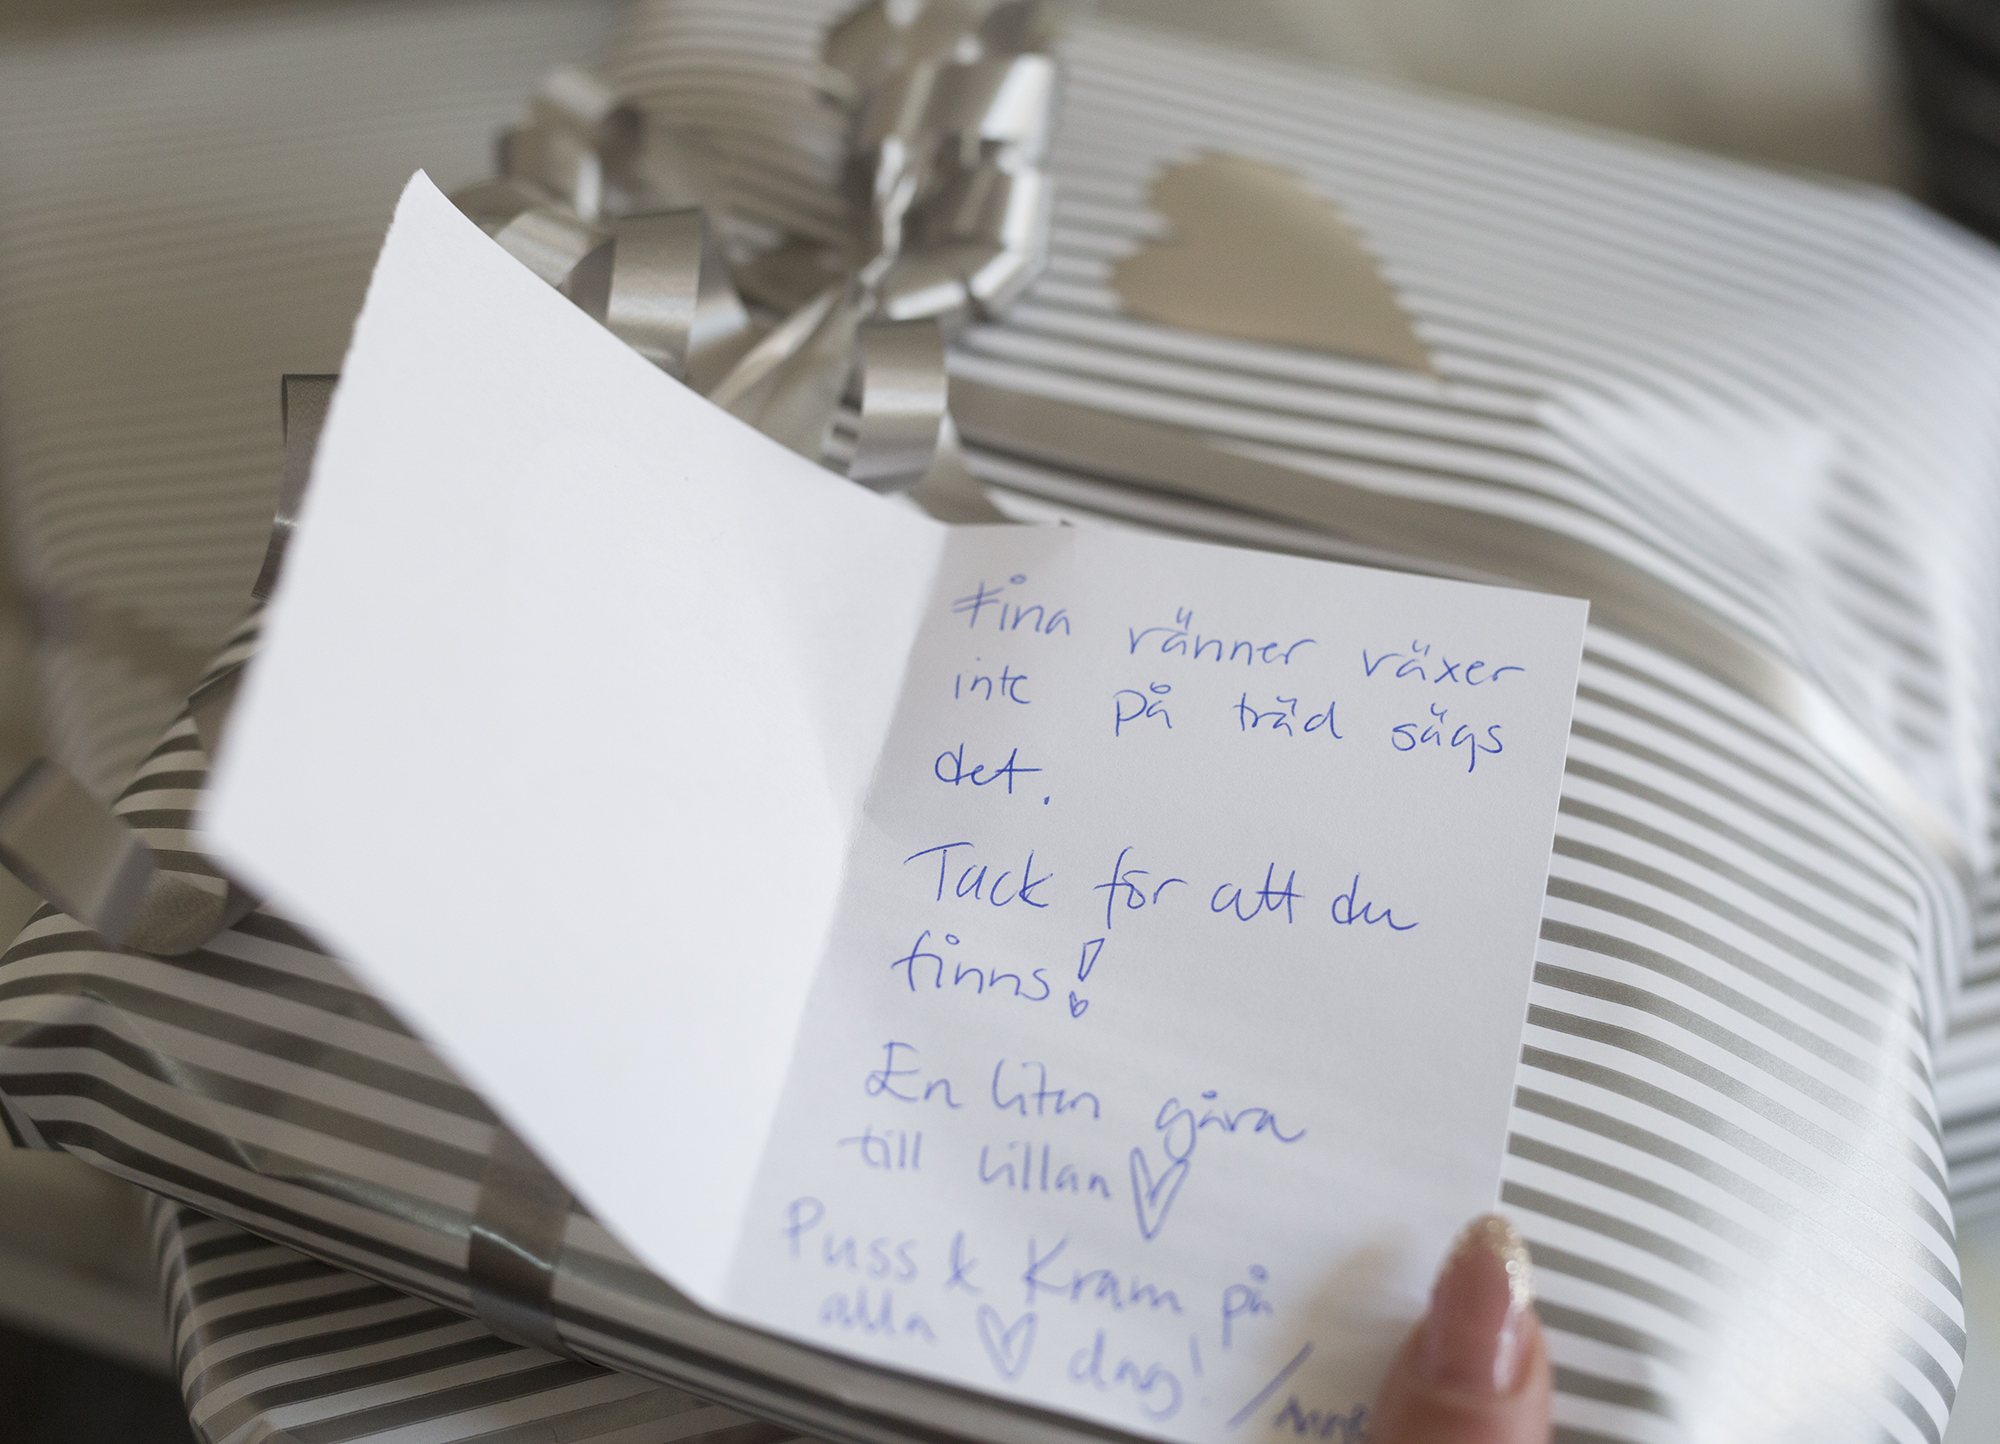 Fina vänner växer
inte på träd sägs
det.
Tack för att du
finns!
En liten gåva
till lillan ♡
Puss & Kram på
alla ♡ dag!